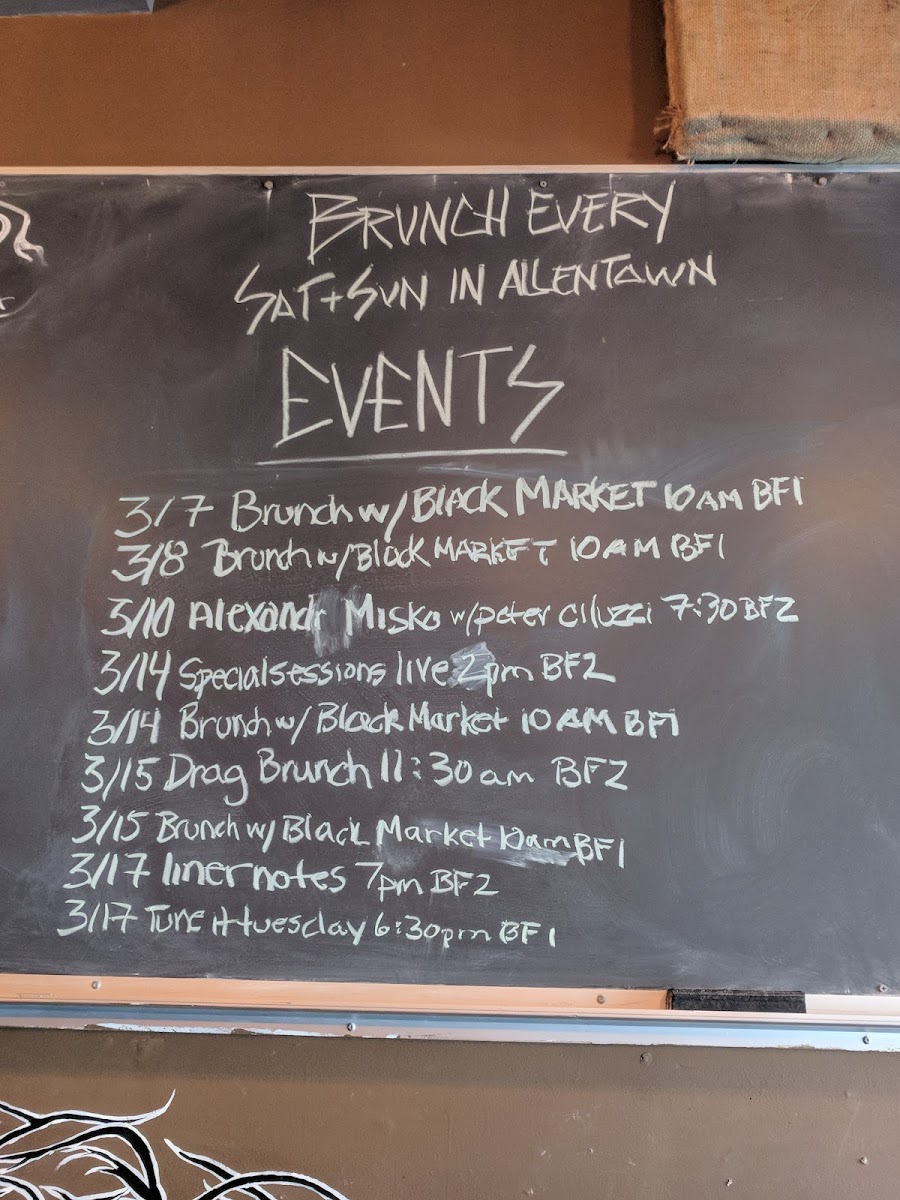 BRUNCH EVERY
SAT + SUN IN ALLENTOWN
EVENTS
3/7 Brunch w/ BLACK MARKET 10 AM BF1
3/8 Brunch w/ Black MARKET 10 AM BF1
3/10 Alexandr Misko w/ peter ciluzzi 7:30 BF2
3/14 Special sessions live 2pm BF2
3/14 Brunch w/ Black Market 10 AM BF1
3/15 Drag Brunch 11:30 am BF2
3/15 Brunch w/ Black Market 10am BF1
3/17 liner notes 7pm BF2
3/17 Tune it tuesday 6:30pm BF1